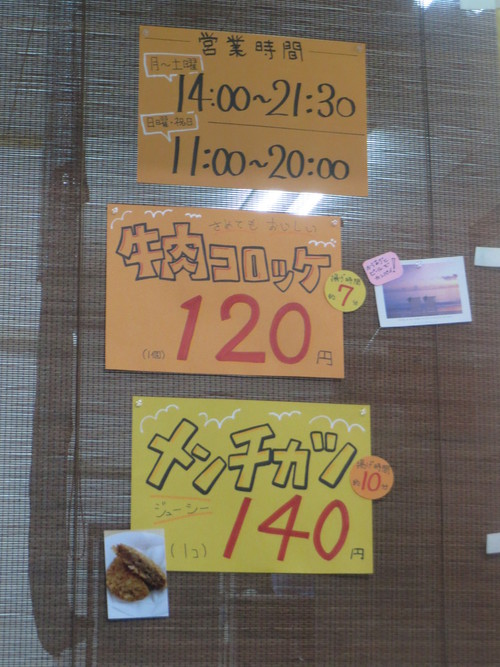 営業時間
月〜土曜
14:00〜21:30
日曜・祝日
11:00〜20:00
さめても おいしい
牛肉コロッケ
揚げ時間
約7分
(1個) 120円
メンチカツ
揚げ時間
約10分
ジューシー
(1コ) 140円